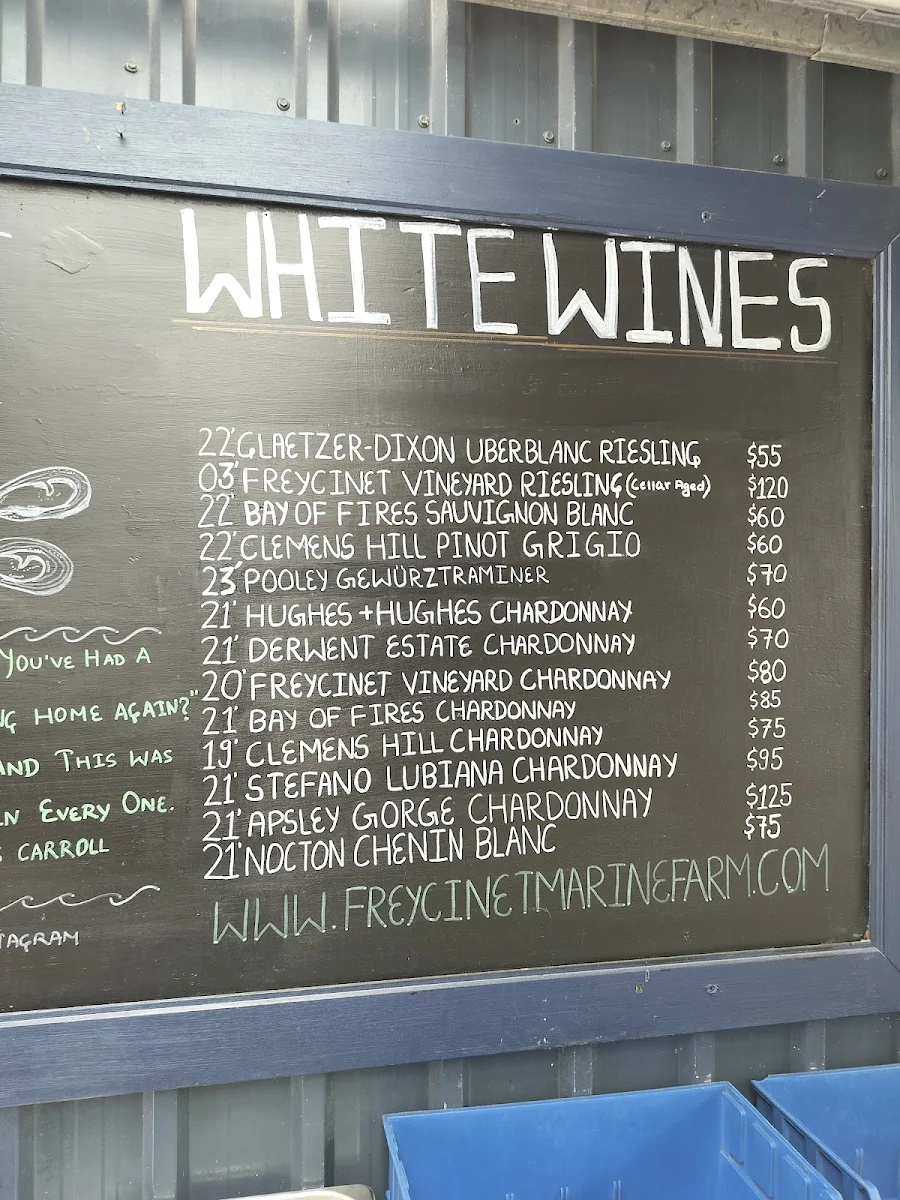 WHITE WINES
22' GLAETZER-DIXON UBERBLANC RIESLING $55
03' FREYCINET VINEYARD RIESLING (Cellar Aged) $120
22' BAY OF FIRES SAUVIGNON BLANC $60
22' CLEMENS HILL PINOT GRIGIO $60
23' POOLEY GEWÜRZTRAMINER $70
21' HUGHES + HUGHES CHARDONNAY $60
21' DERWENT ESTATE CHARDONNAY $70
20' FREYCINET VINEYARD CHARDONNAY $80
21' BAY OF FIRES CHARDONNAY $85
19' CLEMENS HILL CHARDONNAY $75
21' STEFANO LUBIANA CHARDONNAY $95
21' APSLEY GORGE CHARDONNAY $125
21' NOCTON CHENIN BLANC $75
WWW.FREYCINETMARINEFARM.COM
YOU'VE HAD A
HOME AGAIN?"
AND THIS WAS
EVERY ONE.
CARROLL